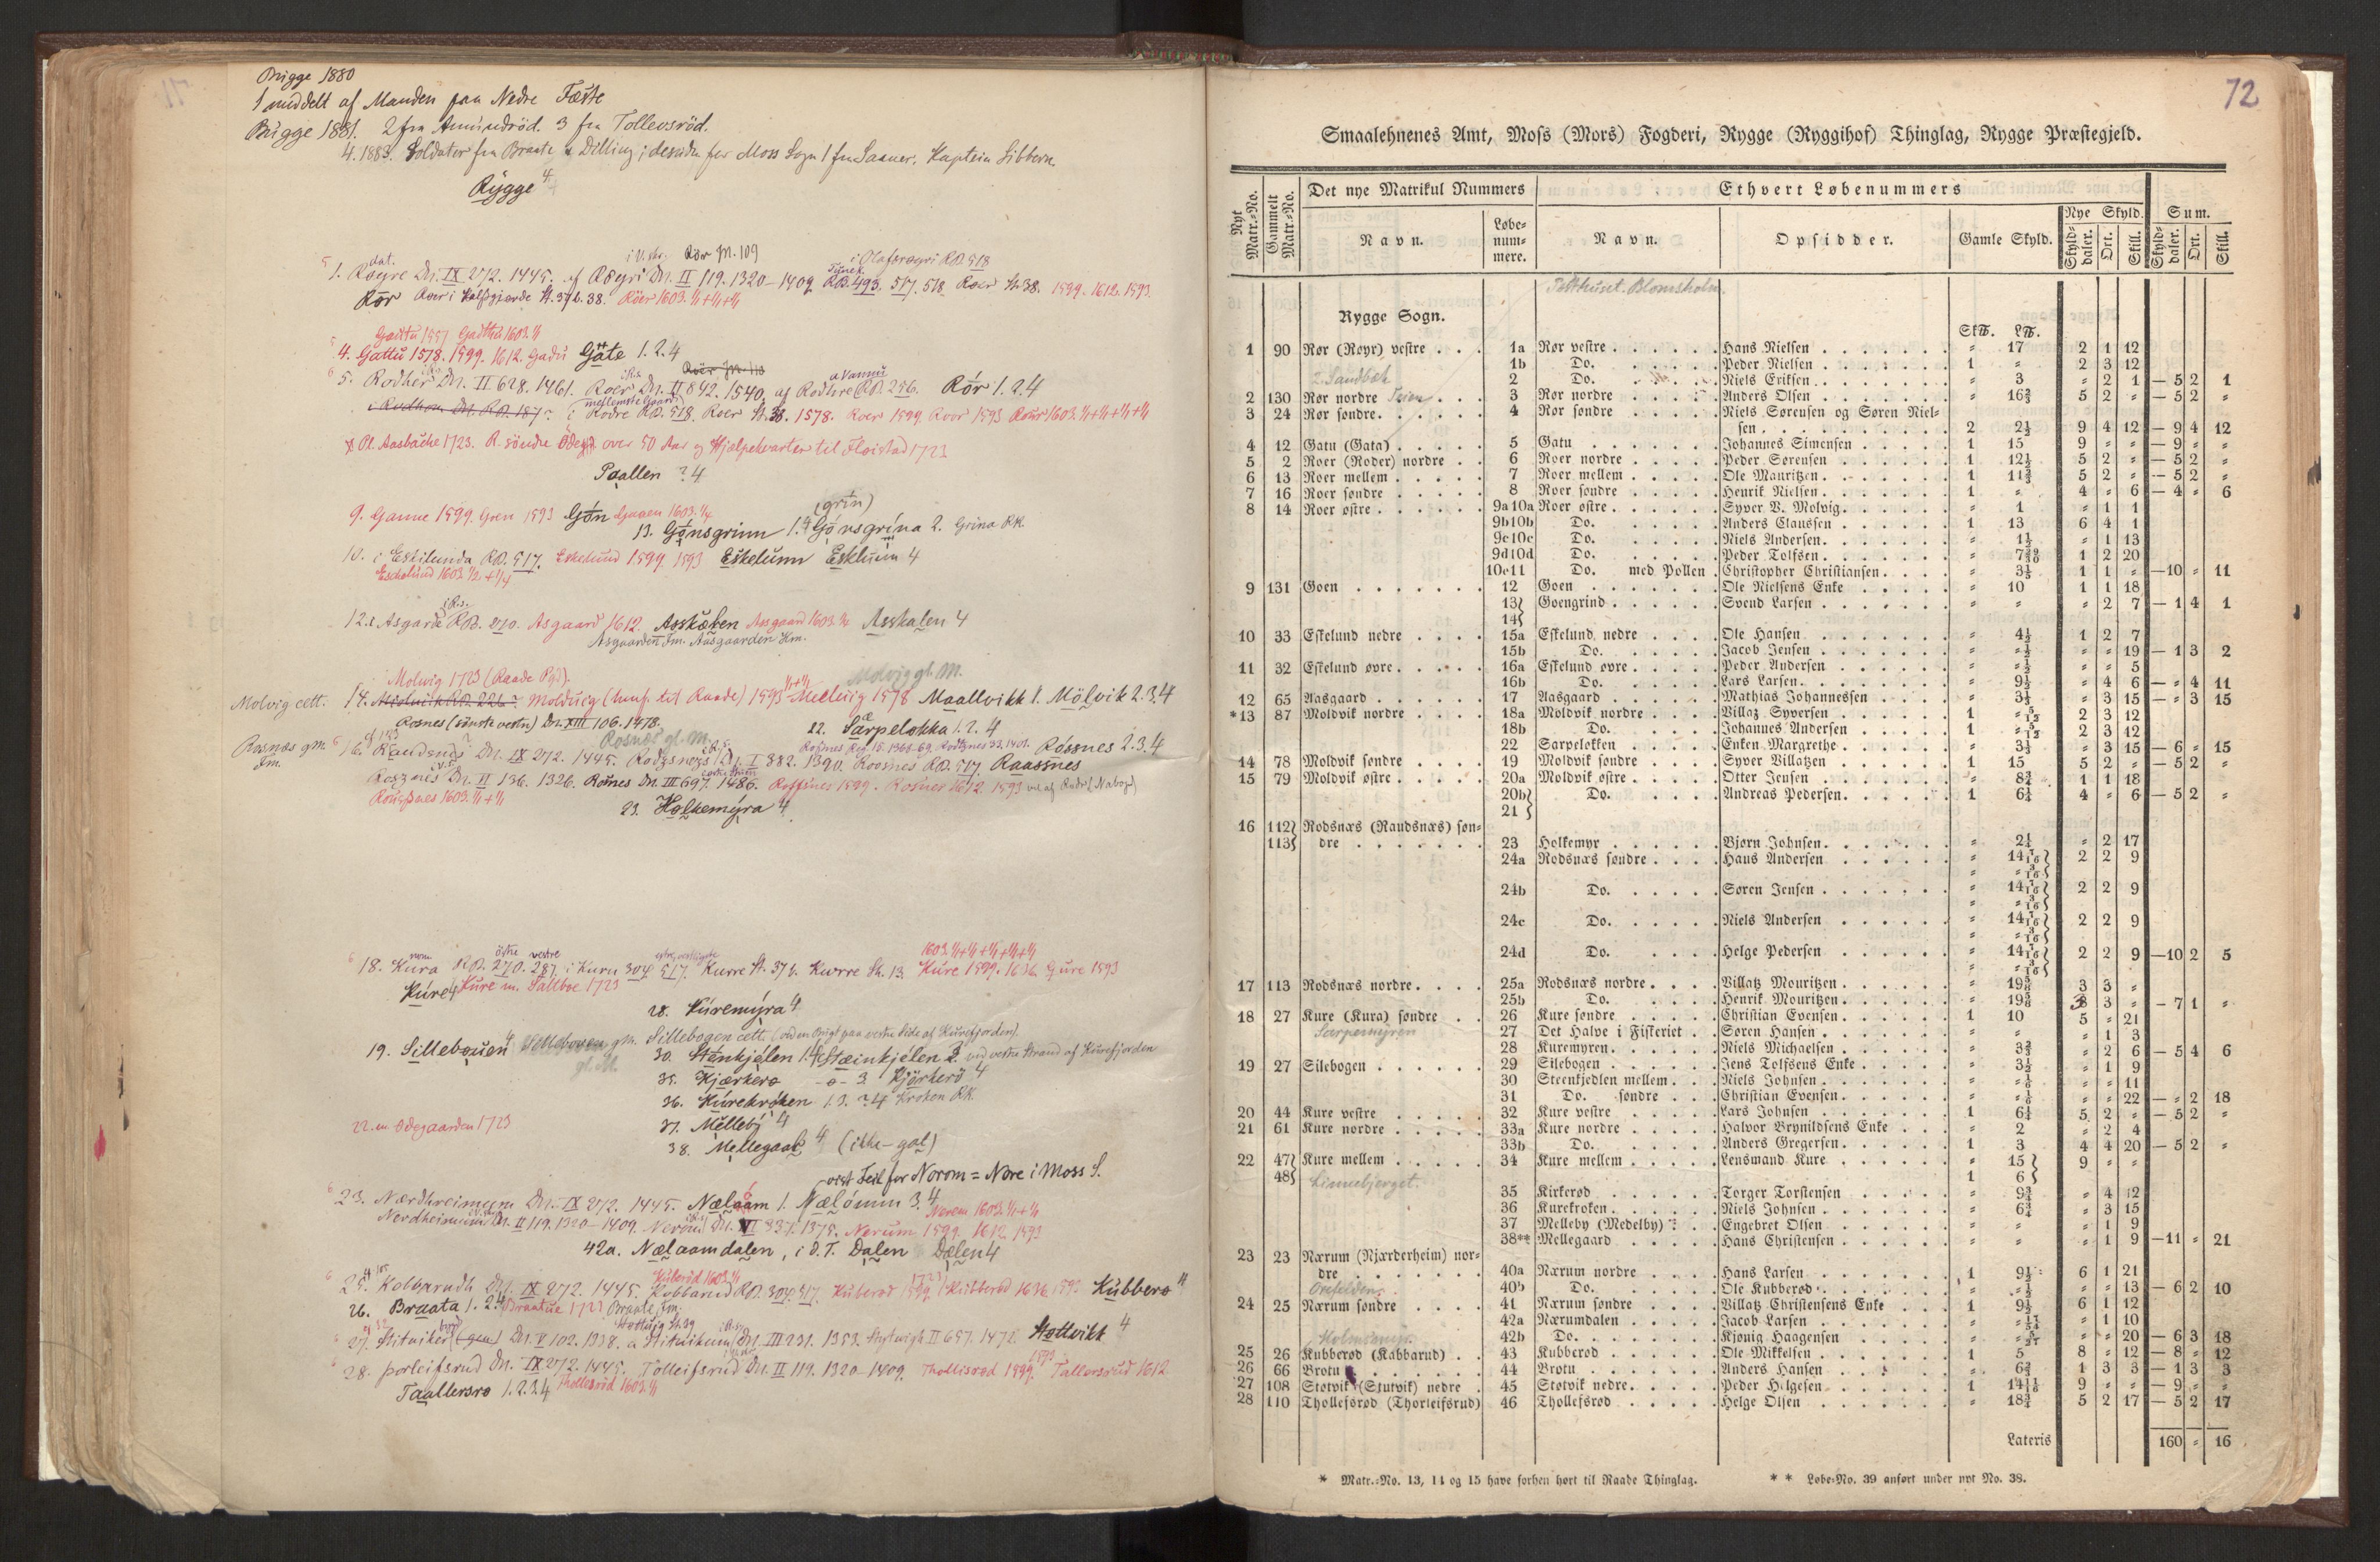 Bugge 1880
1 meddelt af Manden paa Nedre Fæste
Bugge 1881. 2 fra Amundröd. 3 fra Tollevsröd.
4. 1883. Soldater fra Braate & Dilling; desuden for Moss Sogn 1 fra Saaner. Kaptein Sibbern
Rygge 4
Rör M. 109
1. Röyre Dn. IX 272. 1445. af Röyri Dn. II 119. 1320-1409 RB. 493. 517. 518 Roer St. 38. 1599. 1612. 1593
Rör Röer 1603. 1/1+1/1+1/1
Gattu 1591 Gadthu 1603. 1/1
4. Gattu 1578. 1599. 1612. Gadu Gäte 1. 2. 4
5. Rodher Dn. II 628. 1461. Roer Dn. II 842. 1540. af Rodhre RB. 256. Rór 1. 2. 4
i Rodre RB. 518. Roer St. 38. 1578. Roer 1599 Roor 1593
Pl. Aasbache 1723. R. söndre Öde over 50 Aar og Hjælpekvarter til Floistad 1723
Paallen ? 4
(grin)
9. Ganne 1599. Gren 1593 Gön Gaaen 1603. 1/4
13. Gönsgrinn 1. 4 Gó nsgrína 2. Grina RK.
10. i Eskilunda RB. 517. Eskelund 1599 1593 Eskelunn Esklunn 4
Eschelund 1603 1/2 + 1/4
12. i Asgarde RB. 270. Asgaard 1612. Asskåken Aasgaard 1603. Asskalen 4
Aasgaarden Fm. Aasgaarden Km.
Molwig 1723 (Raade Pgd).
Molvig gl. M.
Molvig cett. 14. Molduig (henf. til Raade) 1593 Melluig 1578 Maallvikk 1. Mölvik 2. 3. 4
Rosnes (sönste vestre) Dn. XIII 106. 1478. 22. Særpelokka 1. 2. 4
Rosnæs gl. M.
Rosnæs gm. Fm. 16. Raudsnes Dn. IX 272. 1445. Dn. I 882. 1390. Roosnes RB. 517. Raassnes Róssnes 2. 3. 4
Rosznes Dn. II 136. 1326. Rosnes Dn. III 697. 1486. Rossnes 1599. Rosnes 1612. 1593
23. Holkemýra 4
1603. 1/1+1/1+1/1+1/1+1/1
18. Kura RB. 270. 287. i Kuru 304. 517. Kurre St. 37 b. Kwrre St. 13. Kure 1599. 1636. Gure 1593
Kúre 4 Kure m. Saltboe 1723
28. Kúremýra 4
19. Sillebouen 4 Sillebogen cett. (ved en Bugt paa vestre Side af Kurefjorden).
30. Sténkjélen 1. 4 Stæinkjélen 2. ved vestre Strand af Kurefjorden
35. Kjærkerø -o- 3. Kjörkerö 4
36. Kúrekróken 1. 3. ? 4 Kroken RK.
22. m Ödegaarden 1723 37. Mellebý 4
38. Mellegaal 4 (ikke - gal)
vist Feil for Norom = Nore i Moss S.
23. Nærdhreimum Dn. IX 272. 1445. Nælaam 1. Nælómm 3. 4
Nerdheimum Dn. II 119. 1320-1409. Dn. VI 337. 1375. Nerum 1599 1612 1593 Nerem 1603. 1/1+1/1
42a. Nælaamdalen, i D. T. Dalen Dælen 4
25. Kobbarudh Dn. IX 272. 1445. Kobbarud RB. 304. 517. Kuberød 1599 Kubberød 1636 1593 Kubberø 4
26. Braata 1. 2. 4 Braatue 1723 Braate Fm.
27. Stituiker Dn. V 102. 1338. a Stituikum Dn. III 231. 1353. Stytwigh II 657. 1472. Støttvikk 4
28. Þorleifsrud Dn. IX 272. 1445. Tolleifsrud Dn. II 119. 1320-1409. Thollisrød 1599. Tallersrud 1612
Taallersrø 1. 2. 3. 4 Thollerød 1603. 1/1
72
Smaalehnenes Amt, Moss (Mors) Fogderi, Rygge (Ryggihof) Thinglag, Rygge Præstegjeld.
Nyt Matr.=No. Gammelt Matr.=No. Det nye Matrikul Nummers Ethvert Løbenummers
Nye Skyld. Sum.
Navn. Løbe=nummere. Navn. Opsidder. Gamle Skyld. Skylddaler. Ort. Skill. Skylddaler. Ort. Skill.
Tolthuset. Blomsholm.
Rygge Sogn.
1 90 Rør (Røyr) vestre 1a Rør vestre Hans Nielsen = 17 2 1 12
1b Do. Peder Nielsen 1 = 2 3 12
2. Sandbek
2 Do. Niels Eriksen = 3 = 2 1 — 5 2 1
2 130 Rør nordre Teien 3 Rør nordre Anders Olsen = 16⅔ 5 2 = — 5 2 =
3 24 Rør søndre 4 Rør søndre Niels Sørensen og Søren Niel=
sen 2 2½ 9 4 12 — 9 4 12
4 12 Gatu (Gata) 5 Gatu Johannes Simensen 1 15 9 = = — 9 = =
5 2 Roer (Roder) nordre 6 Roer nordre Peder Sørensen 1 12½ 5 2 = — 5 2 =
6 13 Roer mellem 7 Roer mellem Ole Mauritzen 1 11¾ 5 2 = — 5 2 =
7 16 Roer søndre 8 Roer søndre Henrik Nielsen 1 = 4 = 6 — 4 = 6
8 14 Roer østre 9a 10a Roer østre Syver B. Molvig = 1 = 1 1
9b 10b Do. Anders Claussen 1 13 6 4 1
9c 10c Do. Niels Andersen = 1½ = 1 13
9d 10d Do. Peder Tolfsen 1 2 20
10e 11 Do. med Pollen Christopher Christiansen = 3⅓ 1 1 = — 10 = 11
9 131 Goen 12 Goen Ole Nielsens Enke = 10 1 1 18
13 14 Goengrind Svend Larsen = = = 2 7 — 1 4 1
10 33 Eskelund nedre 15a Eskelund nedre Ole Hansen = 4½ 1 2 7
15b Do. Jacob Jensen = =½ = = 19 — 1 3 2
11 32 Eskelund øvre 16a Eskelund øvre Peder Andersen = =½ = = 5
16b Do. Lars Larsen = 9½ = 4 6 — = 4 11
12 65 Aasgaard 17 Aasgaard Mathias Johannessen = 3½ = 3 15 — = 3 15
*13 87 Moldvik nordre 18a Moldvik nordre Villaz Syversen 1 =5/12 2 3 12
18b Do. Johannes Andersen 1 =5/12 2 3 12
22 Sarpeløkken Enken Margrethe = 3½ = 3 15 — 6 = 15
14 78 Moldvik søndre 19 Moldvik søndre Syver Villatzen 1 15 5 2 = — 5 2 =
15 79 Moldvik østre 20a Moldvik østre Otter Jensen = 8¾ 1 1 18
20b 21 Do. Andreas Pedersen 1 6¼ 4 = 6 — 5 2 =
16 112 113 Rodsnæs (Raudsnæs) søn=
dre 23 Holkemyr Bjørn Johnsen = 2¼ = 2 17
24a Rodsnæs søndre Hans Andersen = 14 7/16 = =3/16 2 2 9
24b Do. Søren Jensen = 14 7/16 = =3/16 2 2 9
24c Do. Niels Andersen = 14 7/16 = =3/16 2 2 9
24d Do. Helge Pedersen = 14 7/16 = =3/16 2 2 9 — 10 2 5
17 113 Rodsnæs nordre 25a Rodsnæs nordre Villatz Mouritzen = 19⅝ 3 3 =
25b Do. Henrik Mouritzen = 19⅝ 3 3 = — 7 1 =
18 27 Kure (Kura) søndre 26 Kure søndre Christian Evensen 1 10 5 = 21
Sarpemyren
27 Det Halve i Fiskeriet Søren Hansen = = = 1 3
28 Kuremyren Niels Michaelsen = 3¾ = 2 6 — 5 4 6
19 27 Silebogen 29 Silebogen Jens Tolfsens Enke = 3½ = 1 9
30 Steenkjedlen mellem Niels Johnsen = =⅙ = = 11
31 Do. søndre Christian Evensen = =⅙ = = 22 — = 2 18
20 44 Kure vestre 32 Kure vestre Lars Johnsen 1 6¼ 5 2 = — 5 2 =
21 61 Kure nordre 33a Kure nordre Halvor Brynildsens Enke = 2 = 2 4
33b Do. Anders Gregersen 1 3 4 4 20 — 5 2 =
22 47 48 Kure mellem 34 Kure mellem Lensmand Kure = 15 1 6 9 = =
Linnebjerget.
35 Kirkerød Torger Torstensen = 9¾ = 4 12
36 Kurekroken Niels Johnsen = 6¾ = 3 15
37 Melleby (Medelby) Engebret Olsen = = = 1 9
38** Mellegaard Hans Christensen = = = 1 9 — 11 = 21
23 23 Nærum (Njærderheim) nor=
dre 40a Nærum nordre Hans Larsen 1 9½ 6 1 21
40b Do. Ole Kubberød = =½ = = 13 — 6 2 10
24 25 Nærum søndre 41 Nærum søndre Villatz Christensens Enke 1 9½ 6 1 12
42a Nærumdalen Jacob Larsen = 1 10
42b Do. Kjønig Haagensen = = 20 — 6 3 18
25 26 Kubberød (Kabbarud) 43 Kubberød Ole Mikkelsen 1 5 8 = 12 — 8 = 12
26 66 Brotu 44 Brotu Anders Hansen = 6⅔ 1 3 3 — 1 3 3
27 108 Støtvik (Stutvik) nedre 45 Støtvik nedre Peder Helgesen 1 14 11/16 9 = = — 9 = =
28 110 Thollefsrød (Thorleifsrud) 46 Thollefsrød Helge Olsen = 18¾ 5 2 17 — 5 2 17
Lateris 160 = 16
* Matr.=No. 13, 14 og 15 have forhen hørt til Raade Thinglag. ** Løbe=No. 39 anført under nyt No. 38.